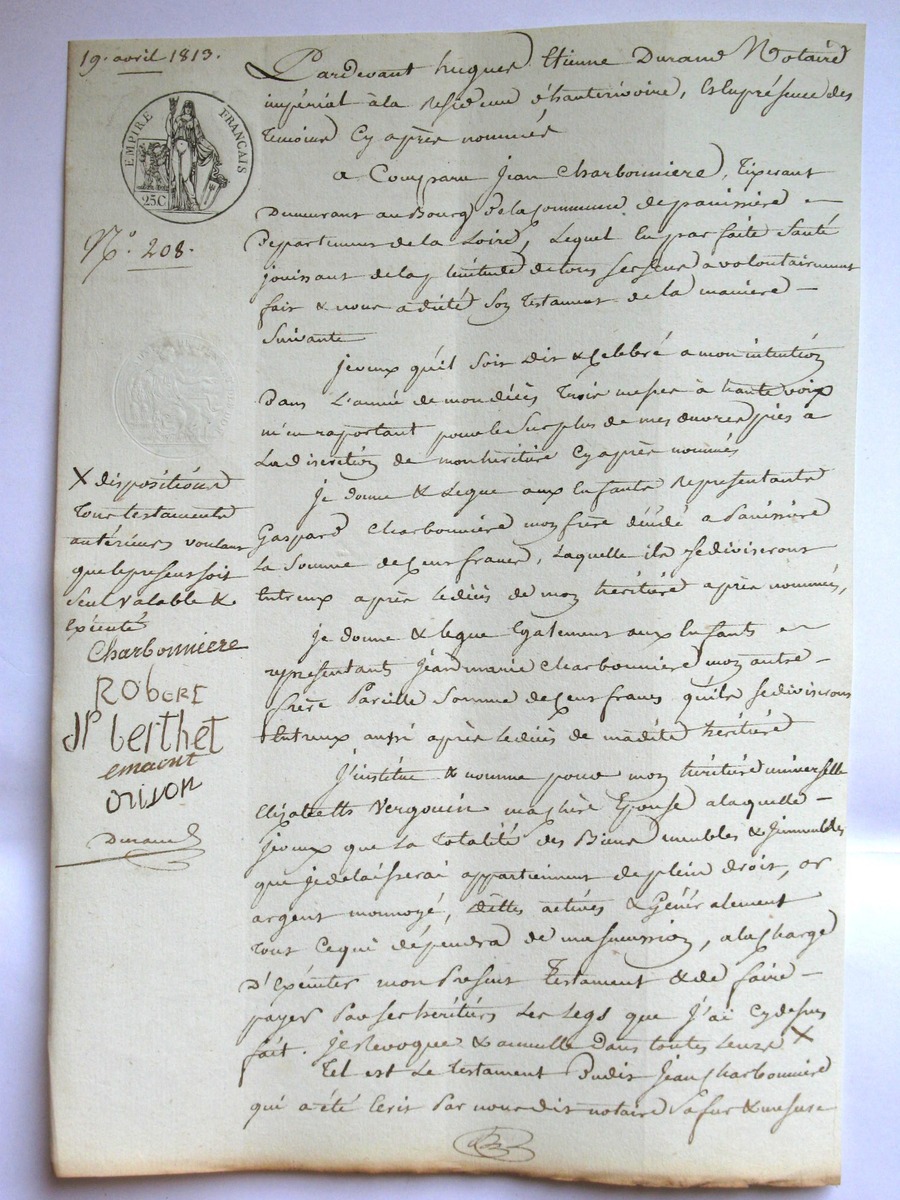 19. avril 1813.
EMPIRE FRANÇAIS
25C
N.° 208.
Pardevant hugues Etienne Durand Notaire
impérial à la residence d'hauterivoire, Et en présence des
temoins Cy après nommés
a Comparu Jean Charbonniere, Tixerant
Demeurant au Bourg De la Commune de panissiere
Departement de la Loire, Lequel En parfaite Santé
jouissant de la plenitude de tous ses sens a volontairement
fait & nous a dicté Son Testament de la maniere –
Suivante
je veux qu'il Soit Dit & Celebré a mon intention
Dans L'année de mon décès Trois messes à haute voix
m'en raportant pour le Surplus de mes œuvres pies à
La discretion de mon héritière Cy après nommée
Je donne & Legue aux Enfants Representants
Gaspard Charbonniere mon frère décédé a Panissiere
La Somme de Cent francs, Laquelle ils se diviseront
Entreux après le décès de mon héritière après nommée,
Je donne & legue Egalement aux Enfants
representant Jean marie Charbonniere mon autre –
frère Pareille Somme de Cent francs qu'ils se diviseront
Entreux aussi après le décès de madite héritière
J'institue & nomme pour mon héritière universelle
Elizabeth Vergoin ma chère Epouse a laquelle –
Je veux que La Totalité des Biens meubles & Jmmeubles
que je délaisserai appartiennent de plein droit, or
argent monnoyé, dettes actives & Généralement
Tout Ce qui dépendra de ma succession, a la Charge
D'Exécuter mon Present Testament & de faire –
payer Par ses héritiers Les Legs que J'ai Cy dessus
fait. Je Revoque & annulle Dans toutes leurs X
Tel est Le testament Dudit Jean Charbonniere
qui a été Ecrit Par nous dit notaire a fur & mesure
X dispositions
Tous testaments
antérieurs voulant
que le present soit
Seul valable &
Exécuté
Charbonniere
RObeRE
JP berthet
orison
Durand